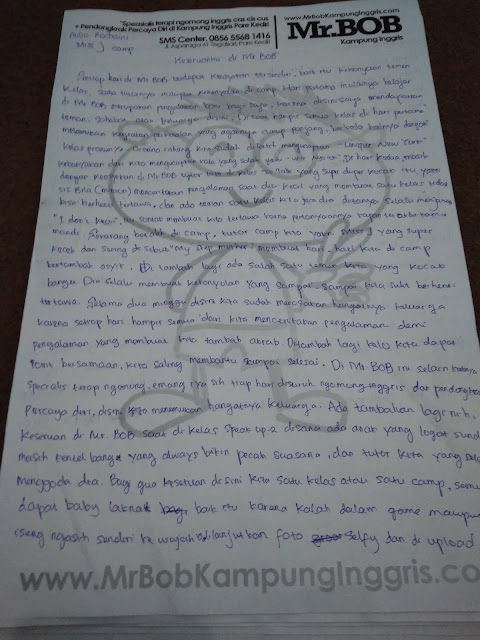 "Spesialis terapi ngomong Inggris cas cis cus
+ Pendongkrak Percaya Diri di Kampung Inggris Pare Kediri"
SMS Center. 0856 5568 1416
Jl. Asparaga 61 Tegalsari, Pare Kediri
www.MrBobKampungInggris.com
Mr.BOB
Kampung Inggris
Aulia
Miss J camp
Keseruanku di Mr BOB
Setiap hari di Mr BOB terdapat keseruan tersendiri, baik itu keseruan teman
kelas, satu tutornya maupun keseruan di camp. Hari pertama mulainya belajar
di Mr BOB merupakan pengalaman baru bagi saya, karena disini saya mendapatkan
teman, sahabat atau keluarga disini. Dimana hampir semua kelas di hari pertama
melakukan kegiatan perkenalan yang ngomongnya cukup panjang, berbeda halnya dengan
kelas
kebanyakan dari kita mengucapkan kata yang salah
dengan keseruan di Mr BOB
sis Bila (Maron) menceritakan pengalaman saat dia kecil yang membuat satu kelas tidak
bisa berhenti tertawa, dan ada teman satu kelas kita jika dia ditanya selalu menjawab
"I don't know", itu sontak membuat kita tertawa karena pertanyaannya kapan terakhir kamu
mandi. Sekarang beralih di camp, tutor camp kita yakni Miss J yang super
kocak dan sering di sebut "My step mother" membuat hari-hari kita di camp
bertambah asyik. Di tambah lagi ada salah satu kita yang kocak
banget. Dia selalu membuat kekonyolan yang sampai-sampai kita sulit berhenti
tertawa. Selama dua minggu disini kita sudah merasakan hangatnya keluarga
karena setiap hari hampir semua dari kita menceritakan pengalaman demi
pengalaman yang membuat kita tambah akrab. Ditambah lagi kalo kita dapat
bersamaan, kita saling membantu sampai selesai. Di Mr BOB ini selain
specialis terapi ngomong, emang iya sih tiap hari disuruh ngomong inggris dan pendongkrak
percaya diri, disini kita menemukan hangatnya keluarga. Ada tambahan lagi nih,
keseruan di Mr. BOB saat di kelas Speak up-2 disana ada anak yang logat sunda
masih kentel banget yang always bikin pecah suasana, dan tutor kita yang selalu
menggoda dia. Bagi gua keseruan disini kita satu kelas atau satu camp, semua
dapat baby baik itu karena kalah dalam game maupun
iseng ngasih sendiri ke wajah dilanjutkan foto selfy dan di upload
www.MrBobKampungInggris.co